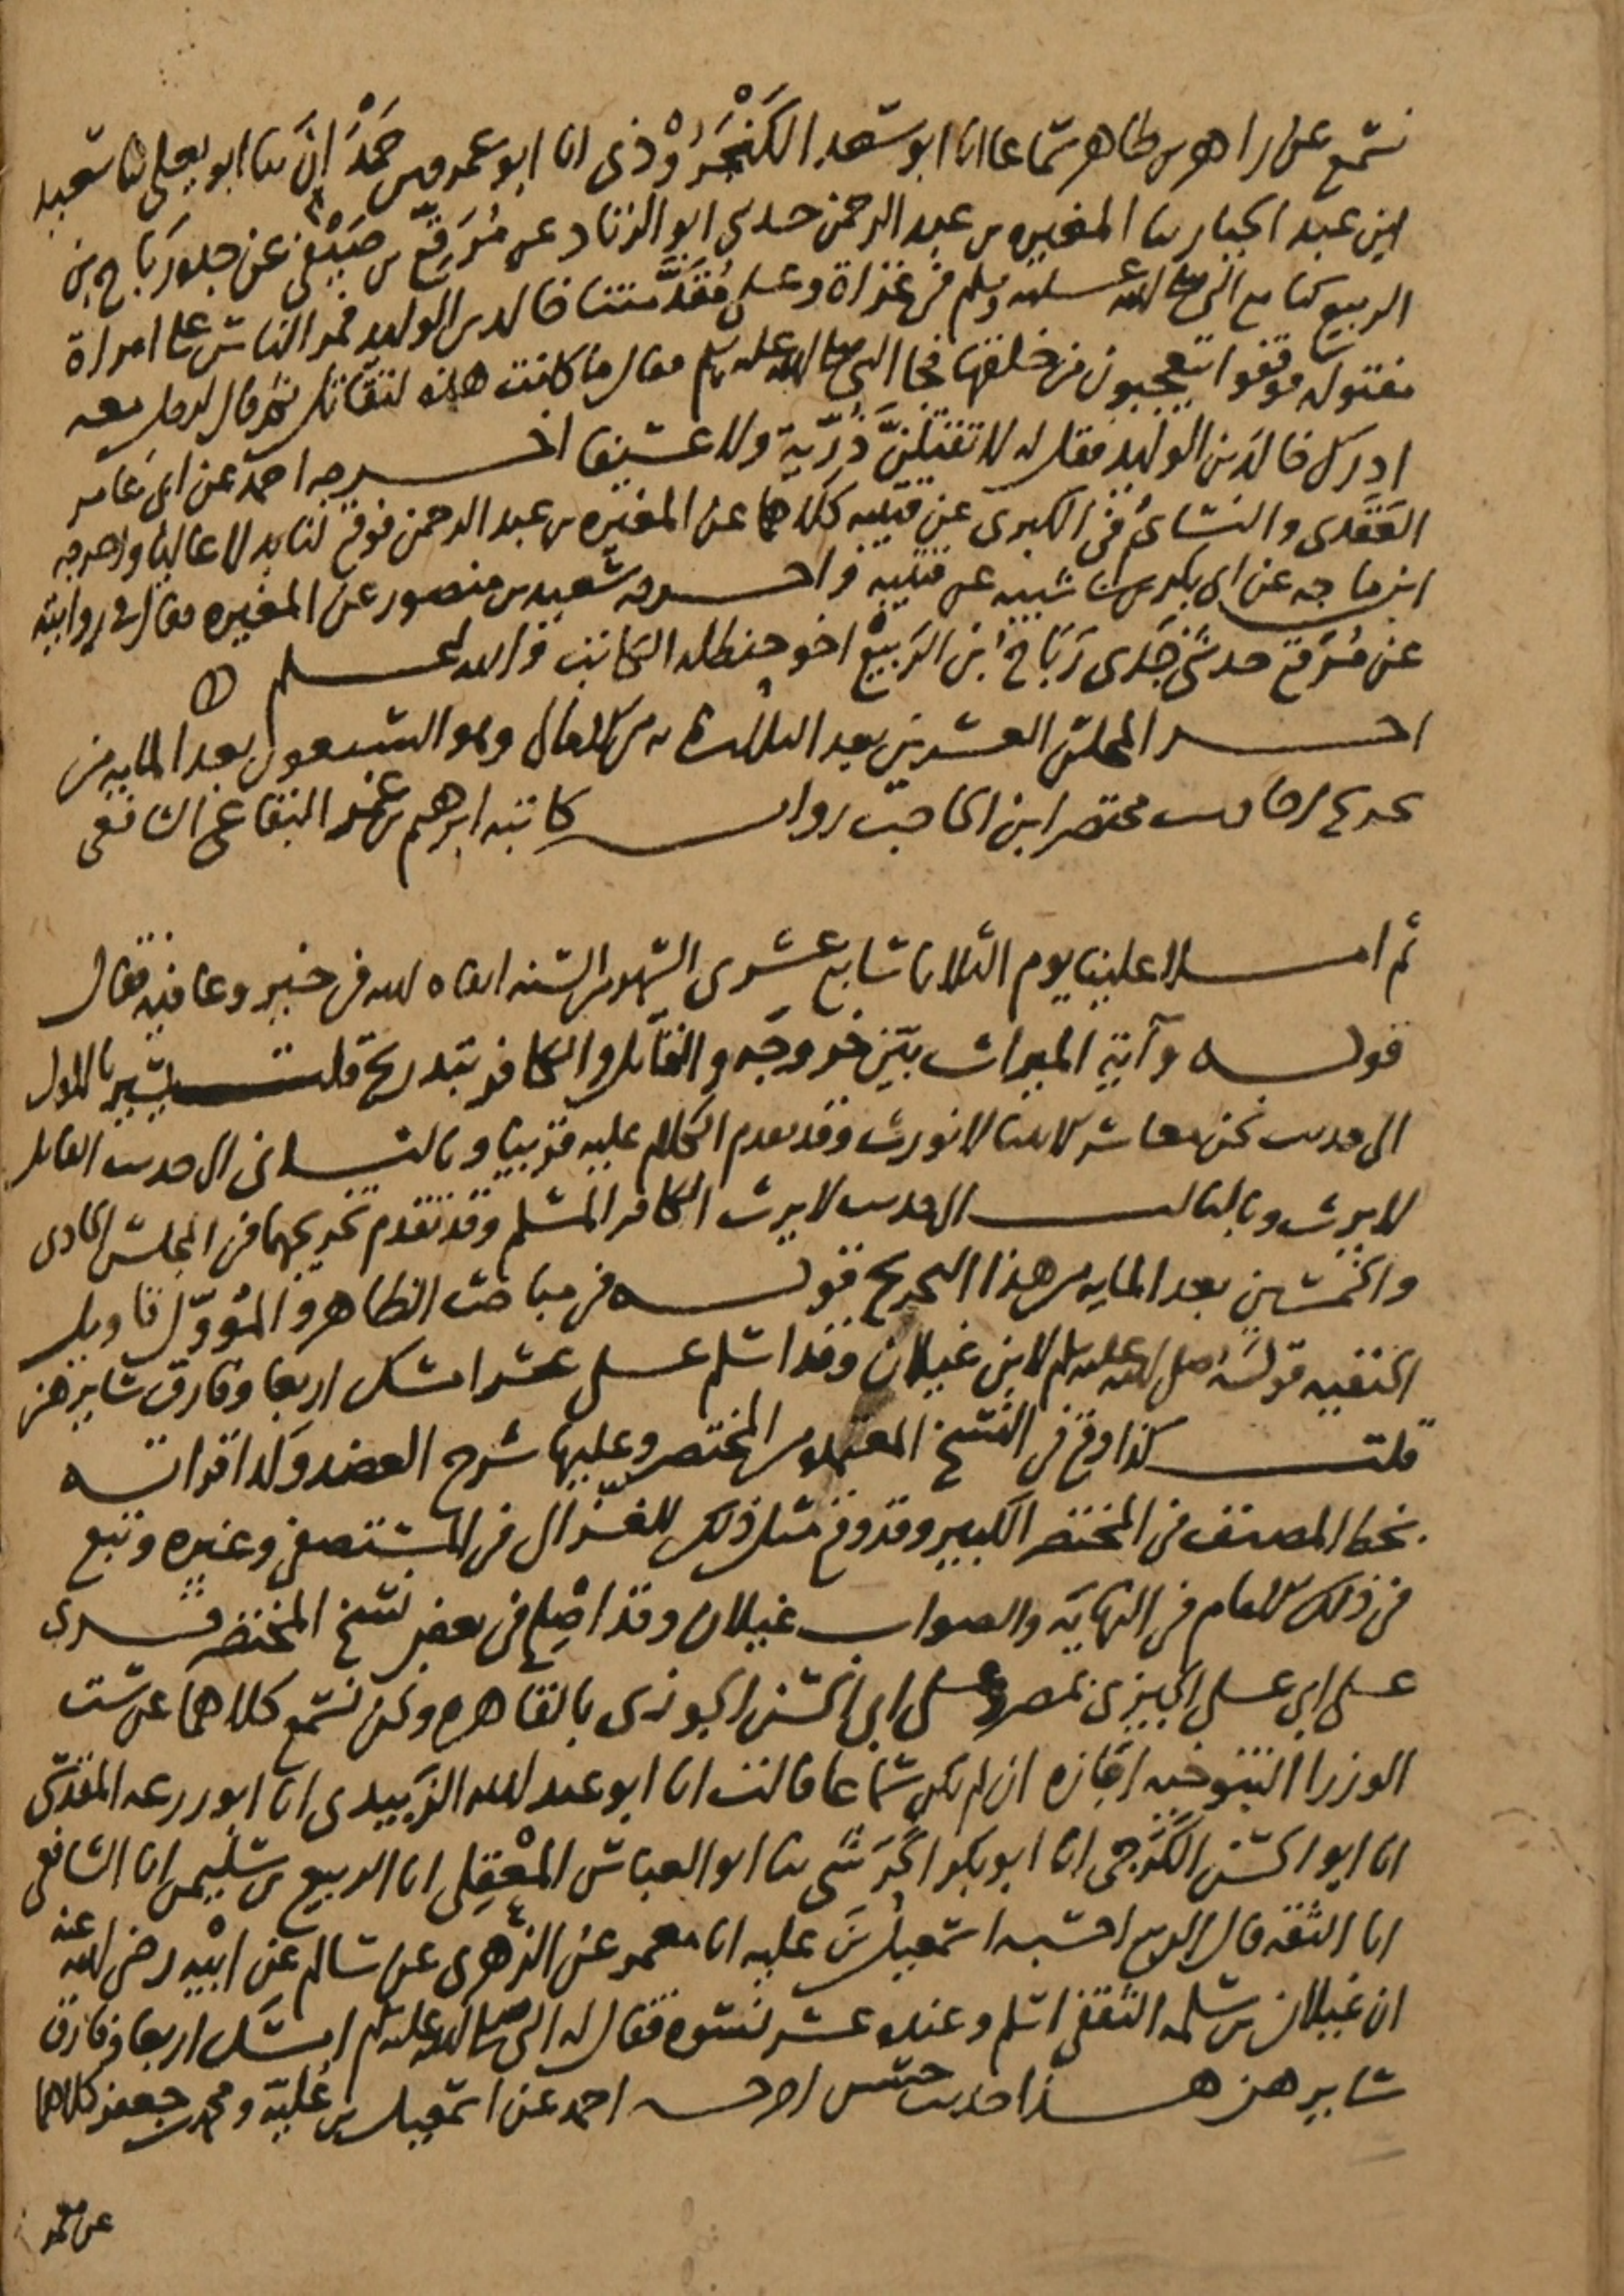 نسمع عن زاهر بن طاهر سماعا انا ابو سعد الكَنْجَرُوْذي انا ابو عمرو بن حَمْدَان ثنا ابو يعلى ثنا سعيد
ابن عبد الجبار ثنا المغيره بن عبد الرحمن حدثني ابو الزناد عن مُرَقِّع بن صَيْفي عن جده رَبَاح بن
الربيع كنا مع النبي صلى الله عليه وسلم في غزاة وعلى مُقَدَّمتنا خالد بن الوليد فمر الناس على امراة
مقتوله فوقفوا يتعجبون من خلقها فجا النبي صلى الله عليه وسلم فقال ما كانت هذه لتقاتل ثم قال لرجل معه
ادرك خالد بن الوليد فقل له لا تقتلنَّ ذُرِّية ولا عسيفا اخرجه احمد عن ابي عامر
العَقَدى والنسائي في الكبرى عن قتيبه كلاهما عن المغيره بن عبد الرحمن فوقع لنا بدلا عاليا واخرجه
ابن ماجه عن ابي بكر بن ابي شيبه عن قتيبه واخرجه سعيد بن منصور عن المغيره فقال في روايته
عن مُرَقع حدثني جَدي رَبَاح ابن الرَبيْع اخو حنظله الكاتب والله اعلم
اخر المجلس العشرين بعد الثلاثمايه من الامالي وهو التسعون بعد المايه من
تخريج احاديث مختصر ابن الحاجب روايه كاتبه ابرهيم بن عمر البقاعي الشافعي
ثم املا علينا يوم الثلاثا سابع عشرى الشهر والسنه ابقاه الله في خير وعافيه فقال
قوله وآية الميراث بتين خروجه والقاتل والكافر بتدريج قلت يشير بالاول
الى حديث نحن معاشر الانبيا لا نورث وقد تقدم الكلام عليه قريبا وبالثاني الى حديث القاتل
لا يرث وبالثالث الى حديث لا يرث الكافر المسلم وقد تقدم تخريجهما في المجلس الحادي
والخمسين بعد المايه من هذا التخريج قوله في مباحث الظاهر والمُؤوّل تاويل
الحنفيه قوله صلى الله عليه وسلم لابن غيلان وقد اسلم على عشر امسك اربعا وفارق سايرهن
قلت كذا وقع في النسخ المعتمده من المختصر وعليها شرح العضد وكذا قراته
بخط المصنف في المختصر الكبير وقد وقع مثل ذلك للغزّالي في المستصفى وغيره وتبع
في ذلك الامام في النهايَه والصواب غيلان وقد اصْلِح في بعض نسخ المختصر قرى
على ابي على الجيزى بمصر وعلى ابي الحسن الجوزى بالقاهره ونحن نسمع كلاهما عن ست
الوزرا التنوخيه اجازه ان لم يكن سماعا قالت انا ابو عبد الله الزَبيدى انا ابو زرعه المقدسي
انا ابو الحسن الكَرَجي انا ابو بكر الحَرَشي ثنا ابو العباس المَعْقِلي انا الربيع بن سليمن انا الشافعي
انا الثقه قال الربيع احسبه اسمعيل بن عليه انا معمر عن الزُهرى عن سالم عن ابْيْه رضى الله عنه
ان غيلان بن سلمه الثقفي اسلم وعنده عشر نسوه فقال له النبي صلى الله عليه وسلم امسك اربعا وفارق
سايرهن هذا حديث حسن اخرجه احمد عن اسمعيل بن عُليّه ومحمد بن جعفر كلاهما
عن معمر